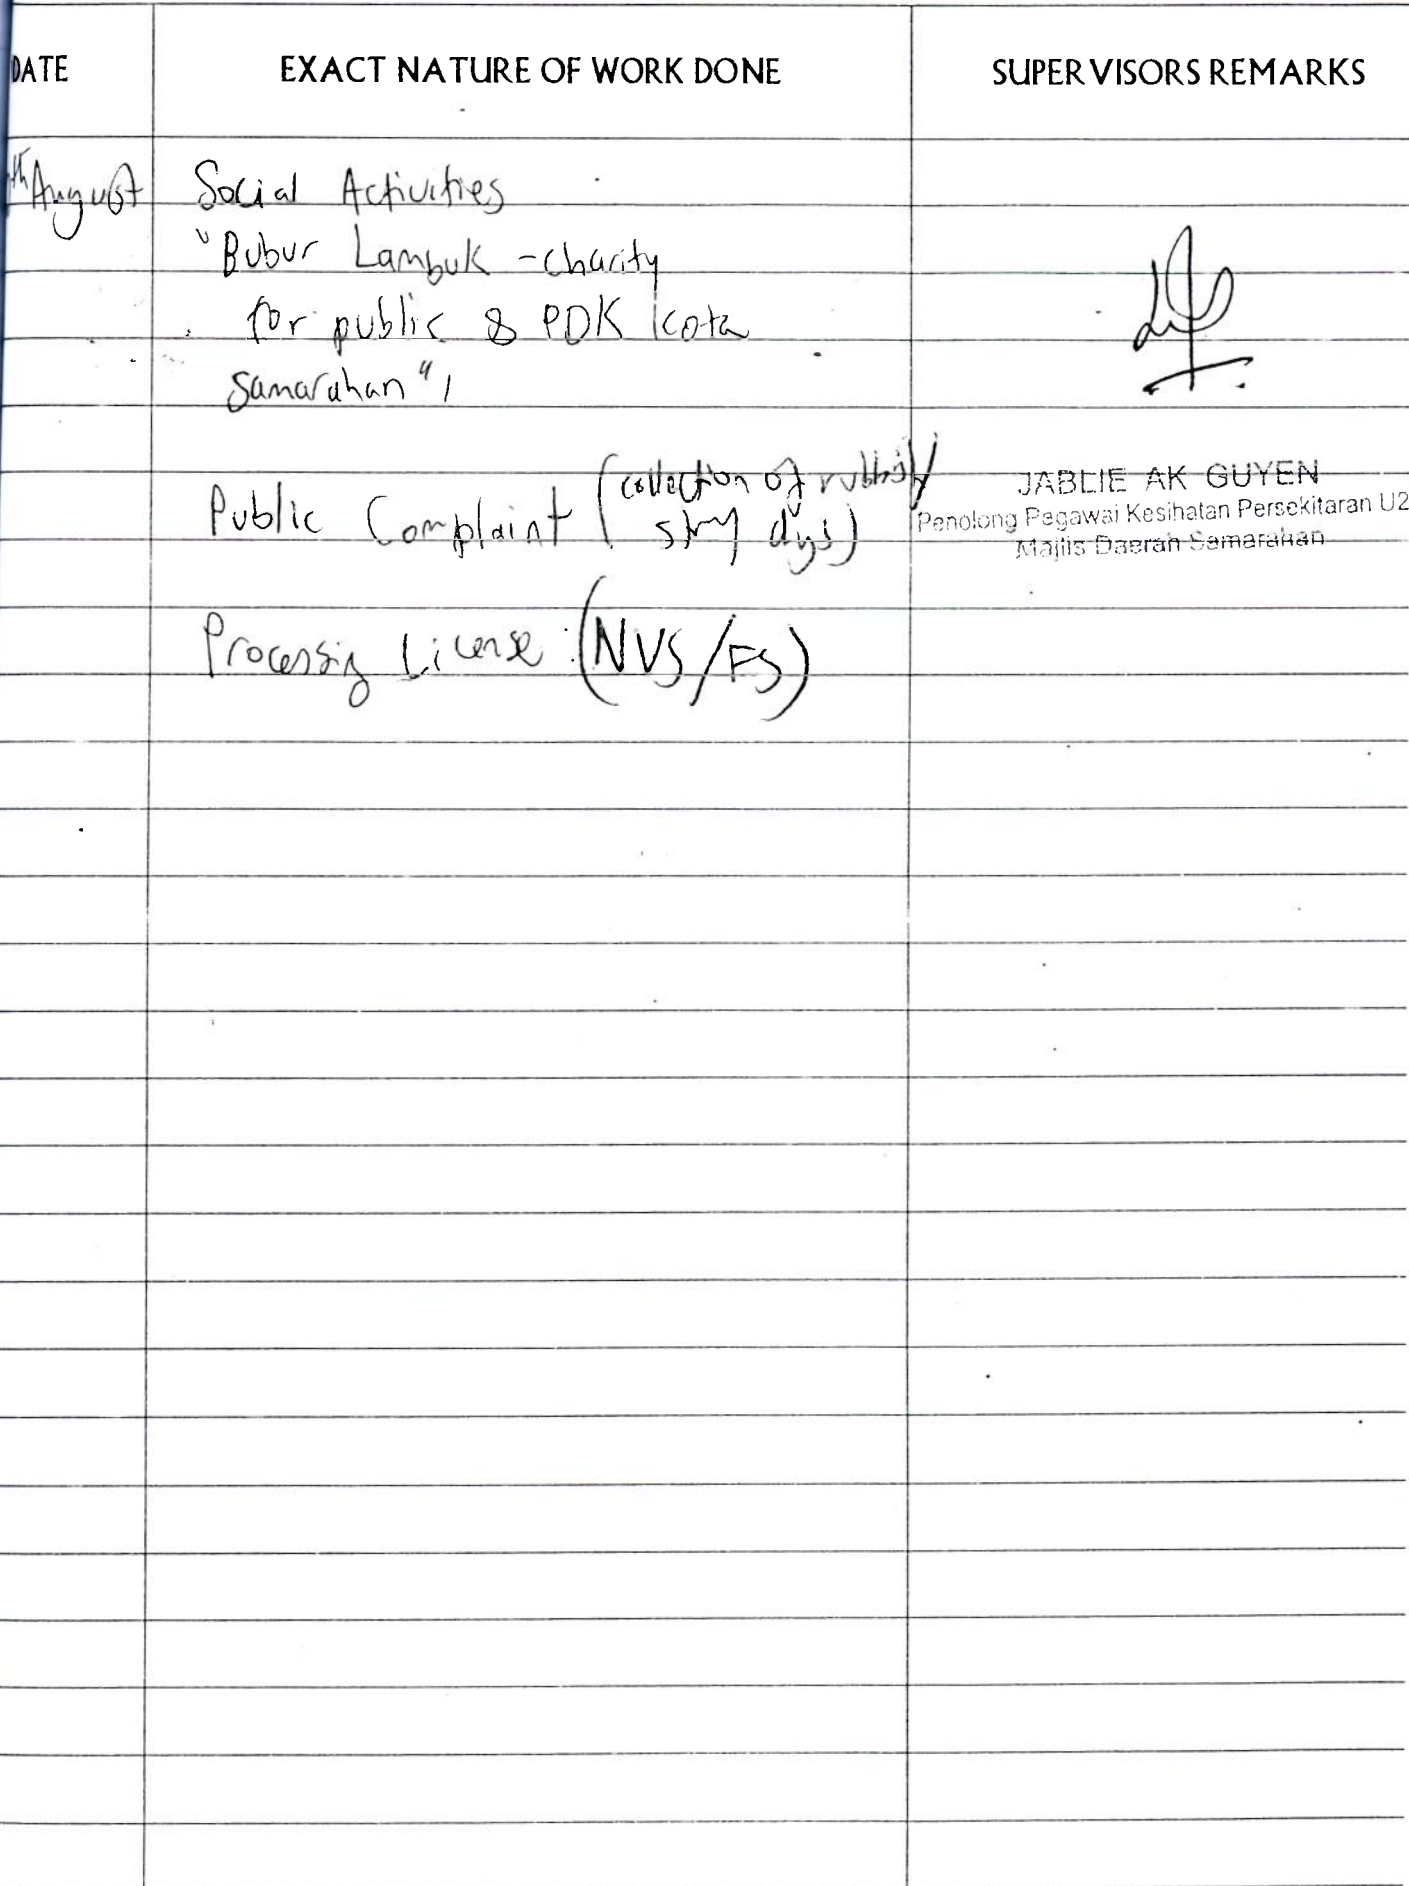 DATE EXACT NATURE OF WORK DONE SUPERVISORS REMARKS
th August Social Activities
"Bubur Lambuk - charity
for public & PDK Kota
Samarahan",
Public Complaint (collection of rubbish/
stray dogs)
JABLIE AK GUYEN
Penolong Pegawai Kesihatan Persekitaran U2
Majlis Daerah Samarahan
Processing License (NVS/FS)